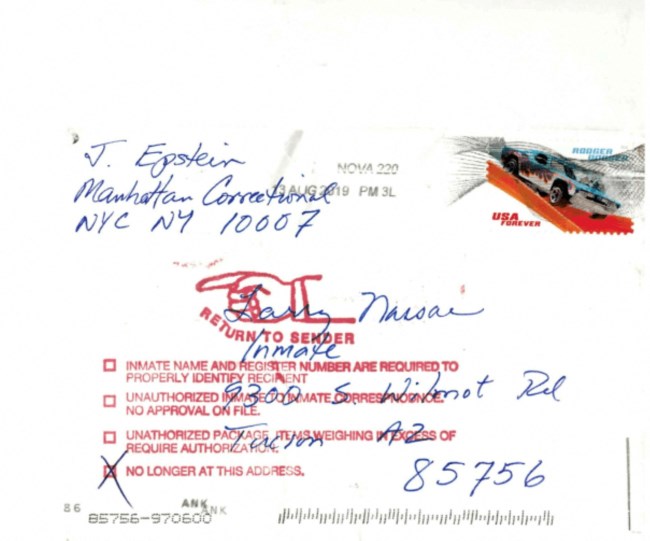 J. Epstein
Manhattan Correctional
NYC NY 10007
NOVA 220
13 AUG 2019 PM 3L
RODGER DODGER
USA
FOREVER
Larry Nassar
Inmate
9300 S. Wilmot Rd
Tucson AZ
85756
RETURN TO SENDER
INMATE NAME AND REGISTER NUMBER ARE REQUIRED TO
PROPERLY IDENTIFY RECIPIENT
UNAUTHORIZED INMATE TO INMATE CORRESPONDNCE.
NO APPROVAL ON FILE.
UNATHORIZED PACKAGE, ITEMS WEIGHING IN EXCESS OF
REQUIRE AUTHORIZATION.
NO LONGER AT THIS ADDRESS.
86
ANK
ANK
85756-970600